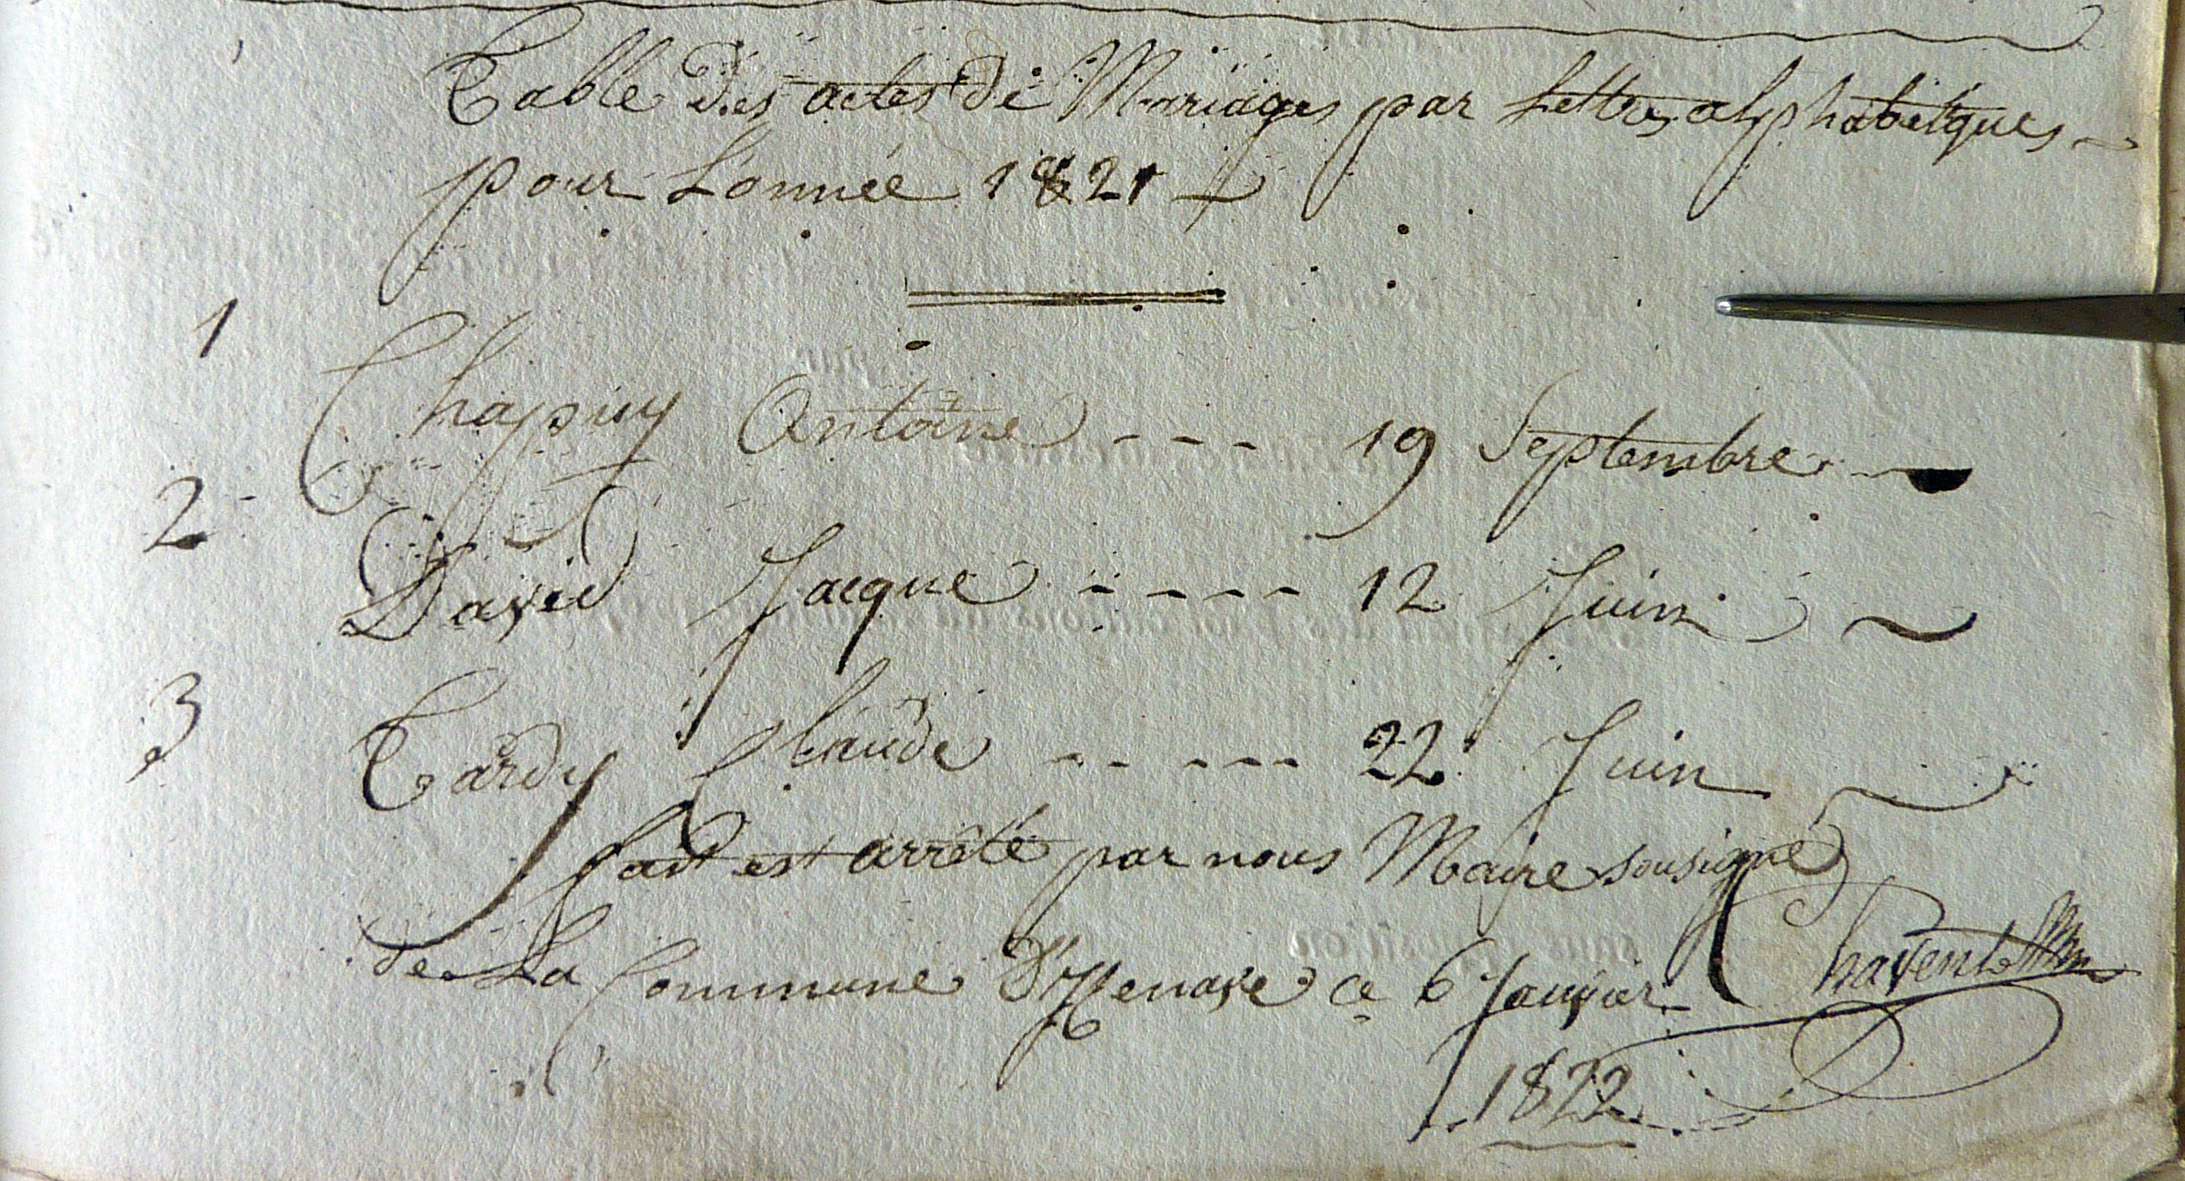 Table des actes de Mariages par Lettres alphabetiques
pour Lonnée 1821
1 Chapuy Antoine - - - 19 Septembre
2 David Jacque - - - - 12 Juin
3 Tardy Claude - - - - - 22 Juin
fait est arrêté par nous Maire sousigné
de La Commune ce 6 Janvier
1822